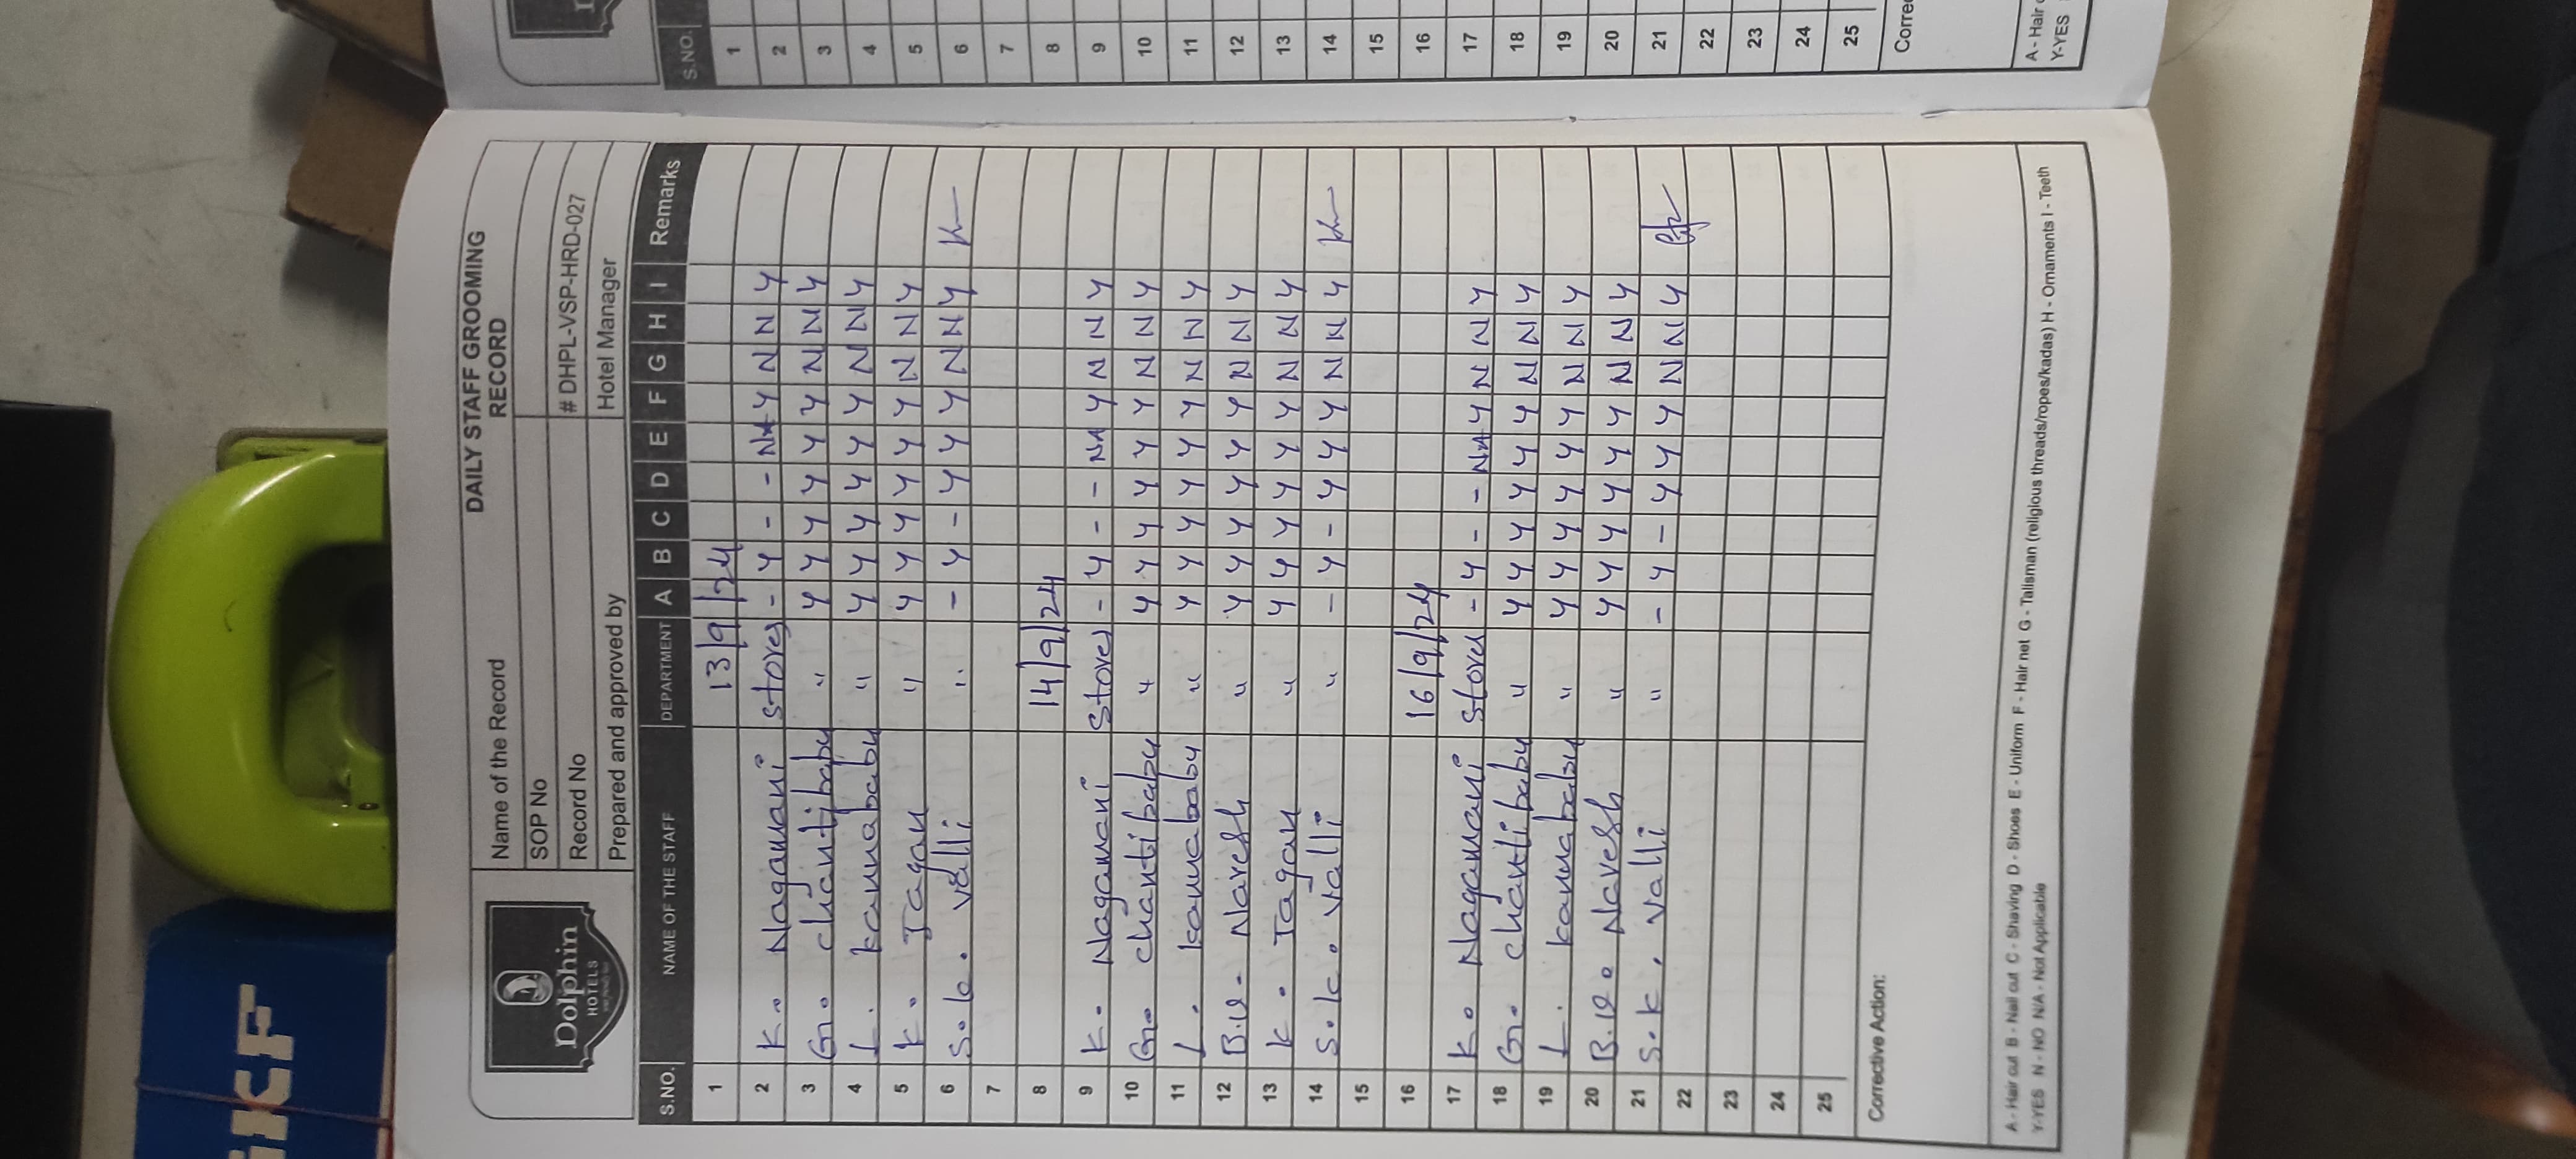 Dolphin
HOTELS
DAILY STAFF GROOMING
RECORD
Name of the Record
SOP No
Record No # DHPL-VSP-HRD-027
Prepared and approved by Hotel Manager
S.NO. NAME OF THE STAFF DEPARTMENT A B C D E F G H I Remarks
1 13/9/24
2 K. Nagamani stores - Y - - NA Y N N Y
3 G. chantibabu " Y Y Y Y Y Y N N Y
4 L. kannababu " Y Y Y Y Y Y N N Y
5 K. Jagan " Y Y Y Y Y Y N N Y
6 S.k. valli " - Y - Y Y Y N N Y
7
8 14/9/24
9 K. Nagamani stores - Y - - NA Y N N Y
10 G. chantibabu " Y Y Y Y Y Y N N Y
11 L. kannababu " Y Y Y Y Y Y N N Y
12 B.V. Naresh " Y Y Y Y Y Y N N Y
13 K. Jagan " Y Y Y Y Y Y N N Y
14 S.k. valli " - Y - Y Y Y N N Y
15
16 16/9/24
17 K. Nagamani stores - Y - - NA Y N N Y
18 G. chantibabu " Y Y Y Y Y Y N N Y
19 L. kannababu " Y Y Y Y Y Y N N Y
20 B.V. Naresh " Y Y Y Y Y Y N N Y
21 S.k. valli " - Y - Y Y Y N N Y
22
23
24
25
Corrective Action:
A - Hair cut B - Nail cut C - Shaving D - Shoes E - Uniform F - Hair net G - Talisman (religious threads/ropes/kadas) H - Ornaments I - Teeth
Y-YES N - NO N/A - Not Applicable
S.NO.
1
2
3
4
5
6
7
8
9
10
11
12
13
14
15
16
17
18
19
20
21
22
23
24
25
A - Hair
Y-YES